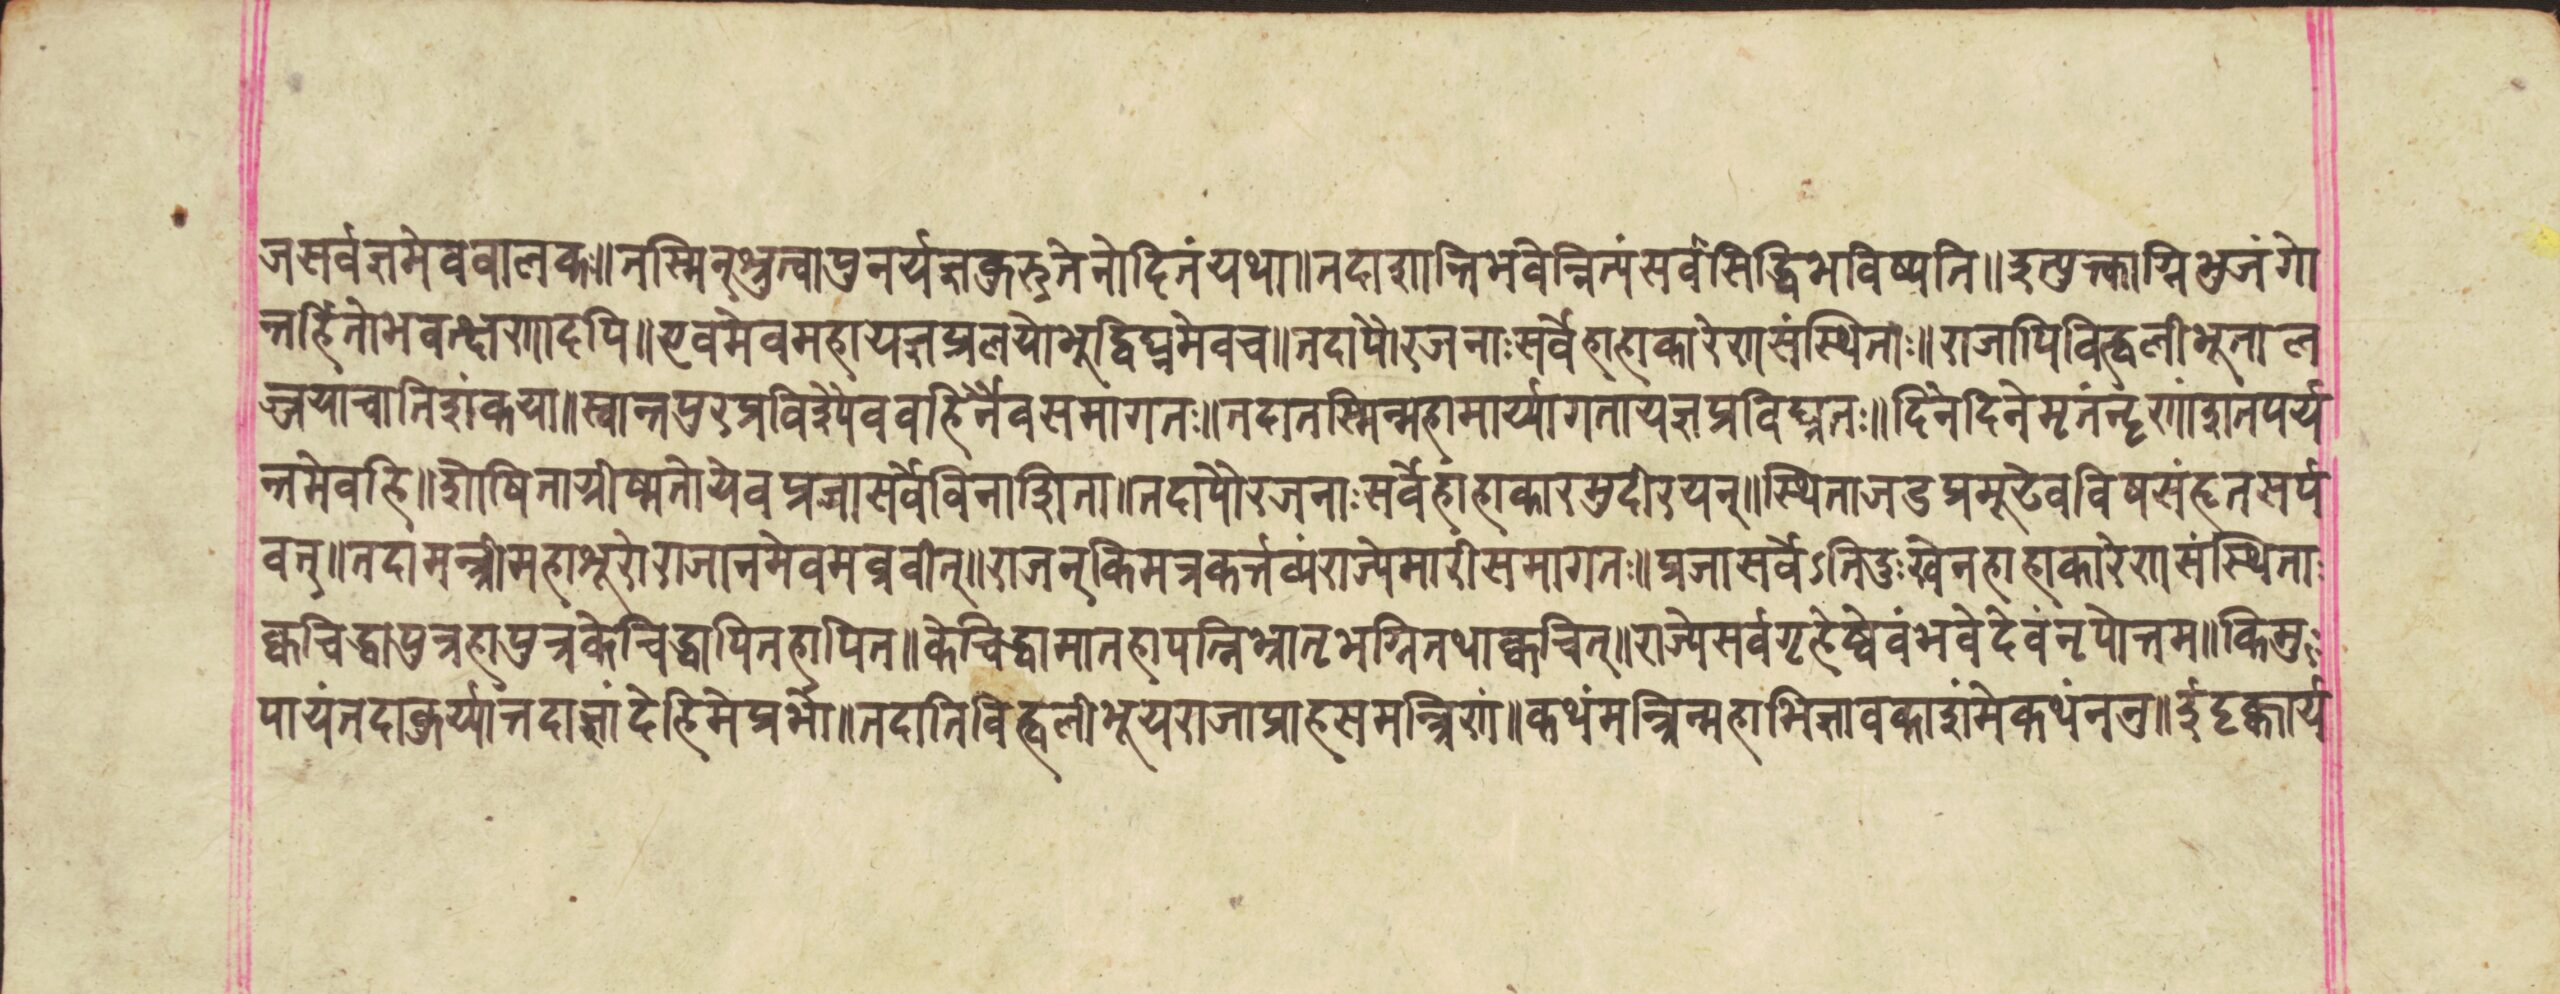 जसर्वज्ञमेववालकः॥तस्मिन्श्रुत्वापुनर्यज्ञकुरुतेनोदितंयथा॥तदाशान्तिभवेन्नित्यंसर्वसिद्धिभविष्यति॥इत्युक्ताग्निभुजंगो
न्तर्हितोभवत्क्षणादपि॥एवमेवमहायज्ञप्रलयोभूद्विघ्नमेवच॥तदापौरजनाःसर्वेहाहाकारेणसंस्थिताः॥राजापिविह्वलीभूताल
ज्जयाचातिशंकया॥स्वान्तपुरप्रविश्यैववहिर्नैवसमागतः॥तदातस्मिन्महामार्य्यागतायज्ञप्रविघ्नतः॥दिनेदिनेमृतंनॄणांशतपर्य
न्तमेवहि॥शोषिताग्रीष्मतोयेवप्रज्ञासर्वेविनाशिता॥तदापौरजनाःसर्वेहाहाकारमुदीरयन्॥स्थिताजडप्रमूढेवविषसंहृतसर्प
वत्॥तदामन्त्रीमहाभूरोराजानमेवमव्रवीत्॥राजन्किमत्रकर्त्तव्यंराज्येमारीसमागतः॥प्रजासर्वेऽतिदुःखेनहाहाकारेणसंस्थिताः
क्वचिद्वापुत्रहापुत्रकेचिद्वापितहापित॥केचिद्वामातहापत्निभ्रातृभग्नितथाक्वचित्॥राज्येसर्वगृहेष्वेवंभवेदेवंनृपोत्तम॥किमु
पायंतदाकुर्य्यांत्तदाज्ञांदेहिमेप्रभो॥तदातिविह्वलीभूयराजाप्राहसमन्त्रिणं॥कथंमन्त्रिन्महाभिज्ञावकाशंमेकथंननु॥ईदृक्कार्य